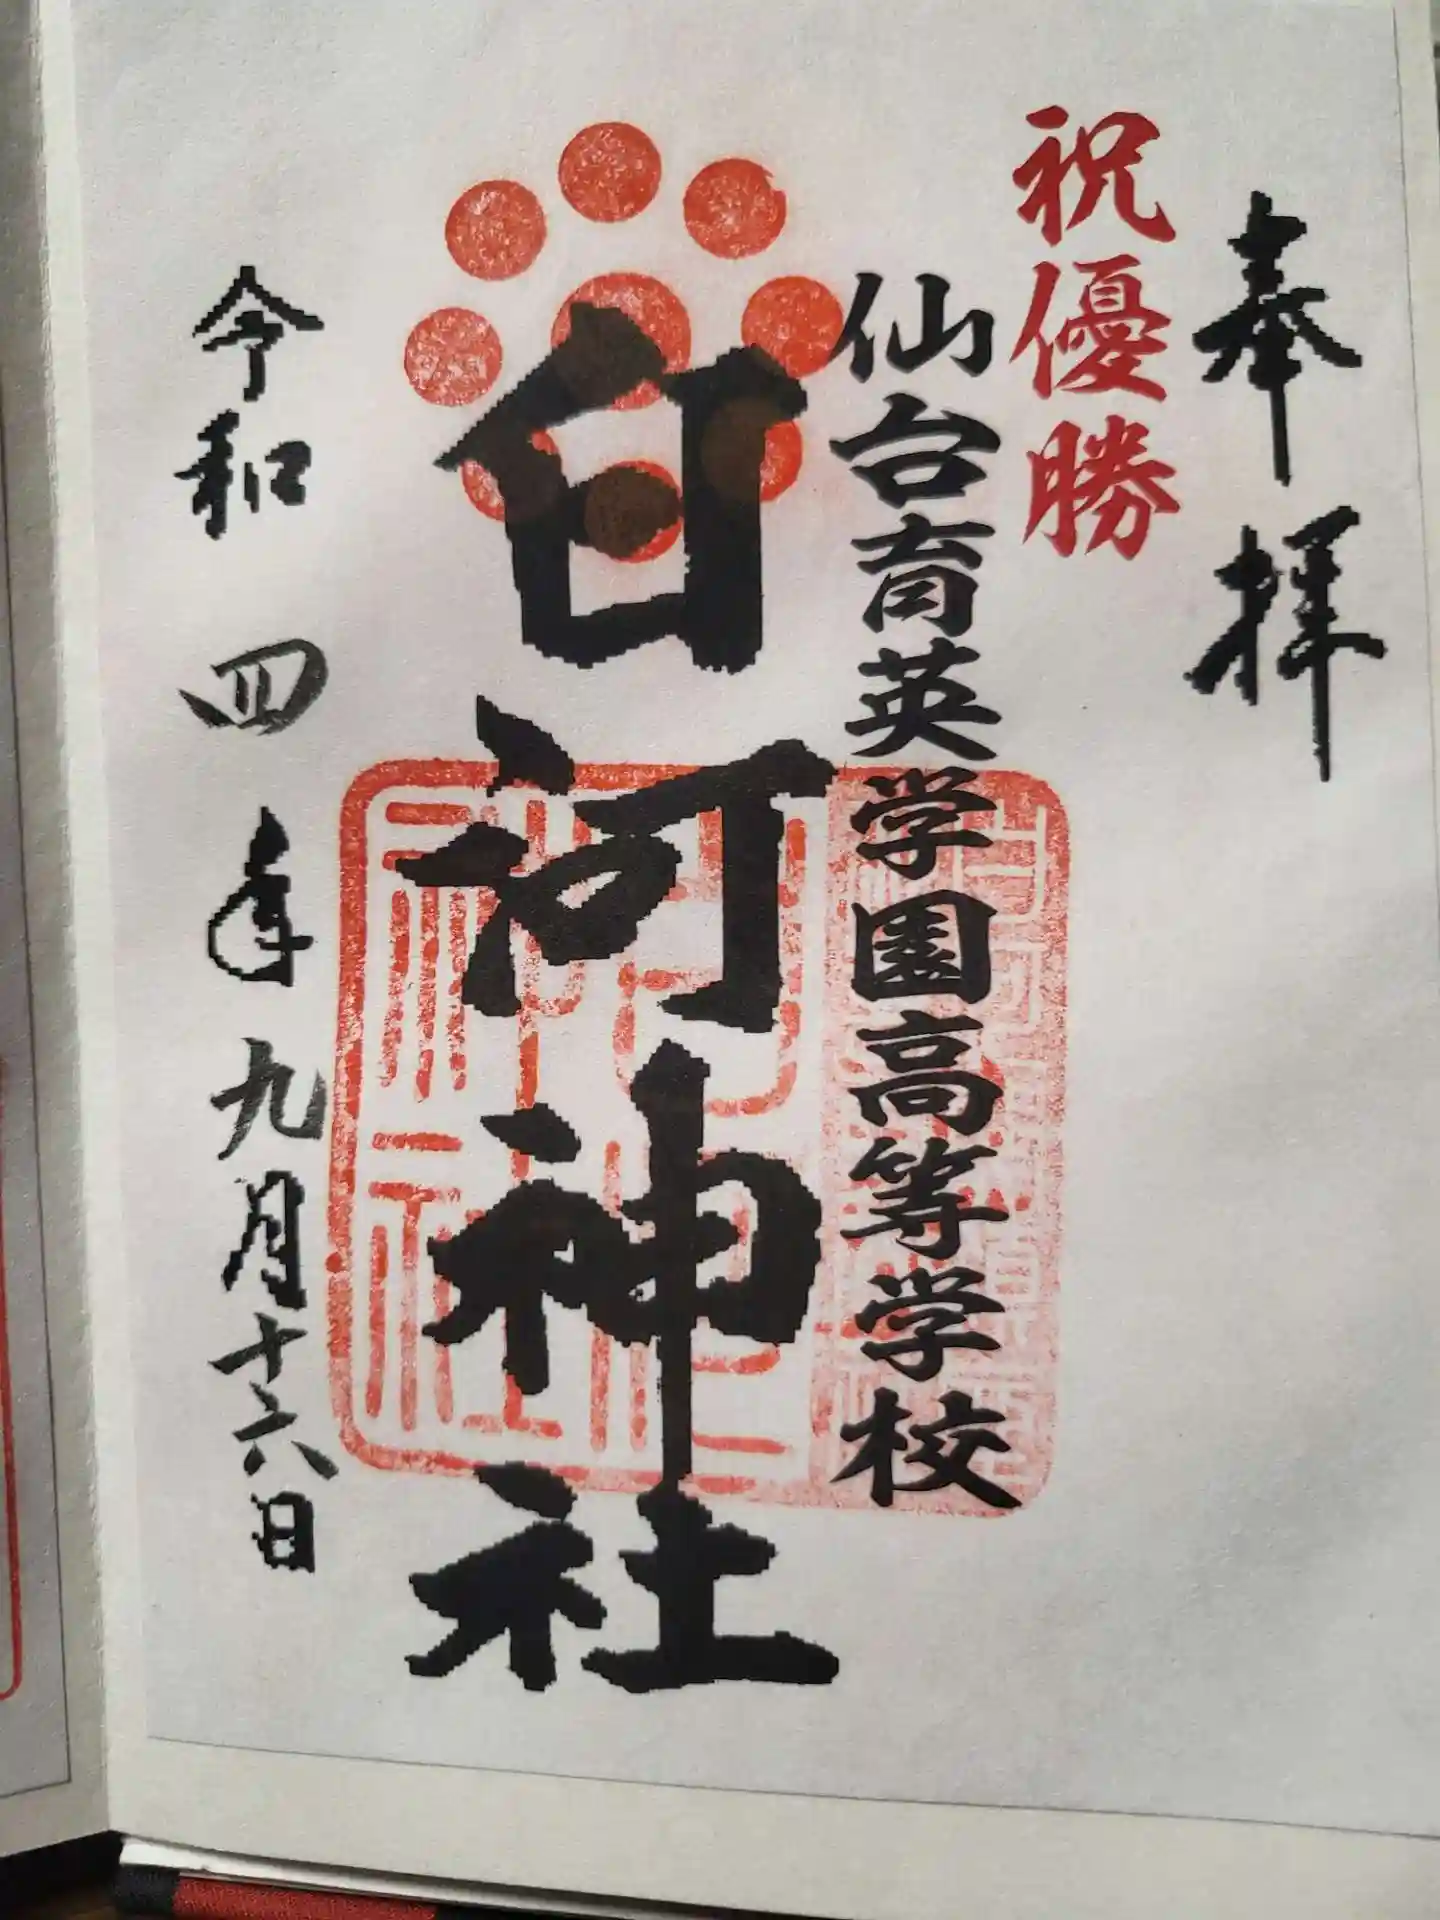 奉拝
祝優勝
仙台育英学園高等学校
白河神社
令和四年九月十六日